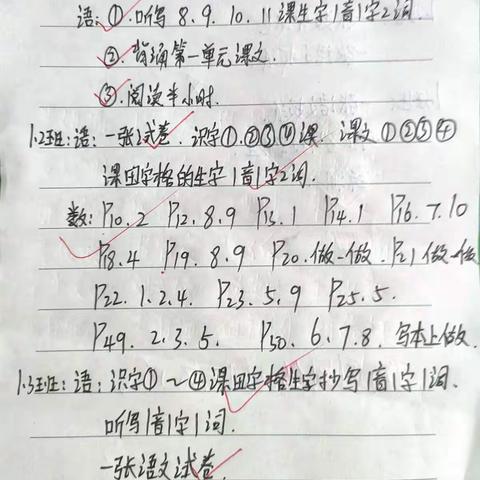 语:①.听写8.9.10.11课生字1音1字2词
②.背诵第一单元课文.
③.阅读半小时.
1.2班:语:一张试卷.识字①.②③④课.课文①②③④
课田字格的生字1音1字2词.
数:P10.2 P12.8.9 P13.1 P14.1 P16.7.10
P18.4 P19.8.9 P20.做一做.P21做一做
P22.1.2.4. P23.5.9 P25.5.
P49.2.3.5. P50.6.7.8.写本上做.
1.3班:语:识字①~④课田字格生字抄写1音1字1词.
听写1音1字1词.
一张语文试卷.